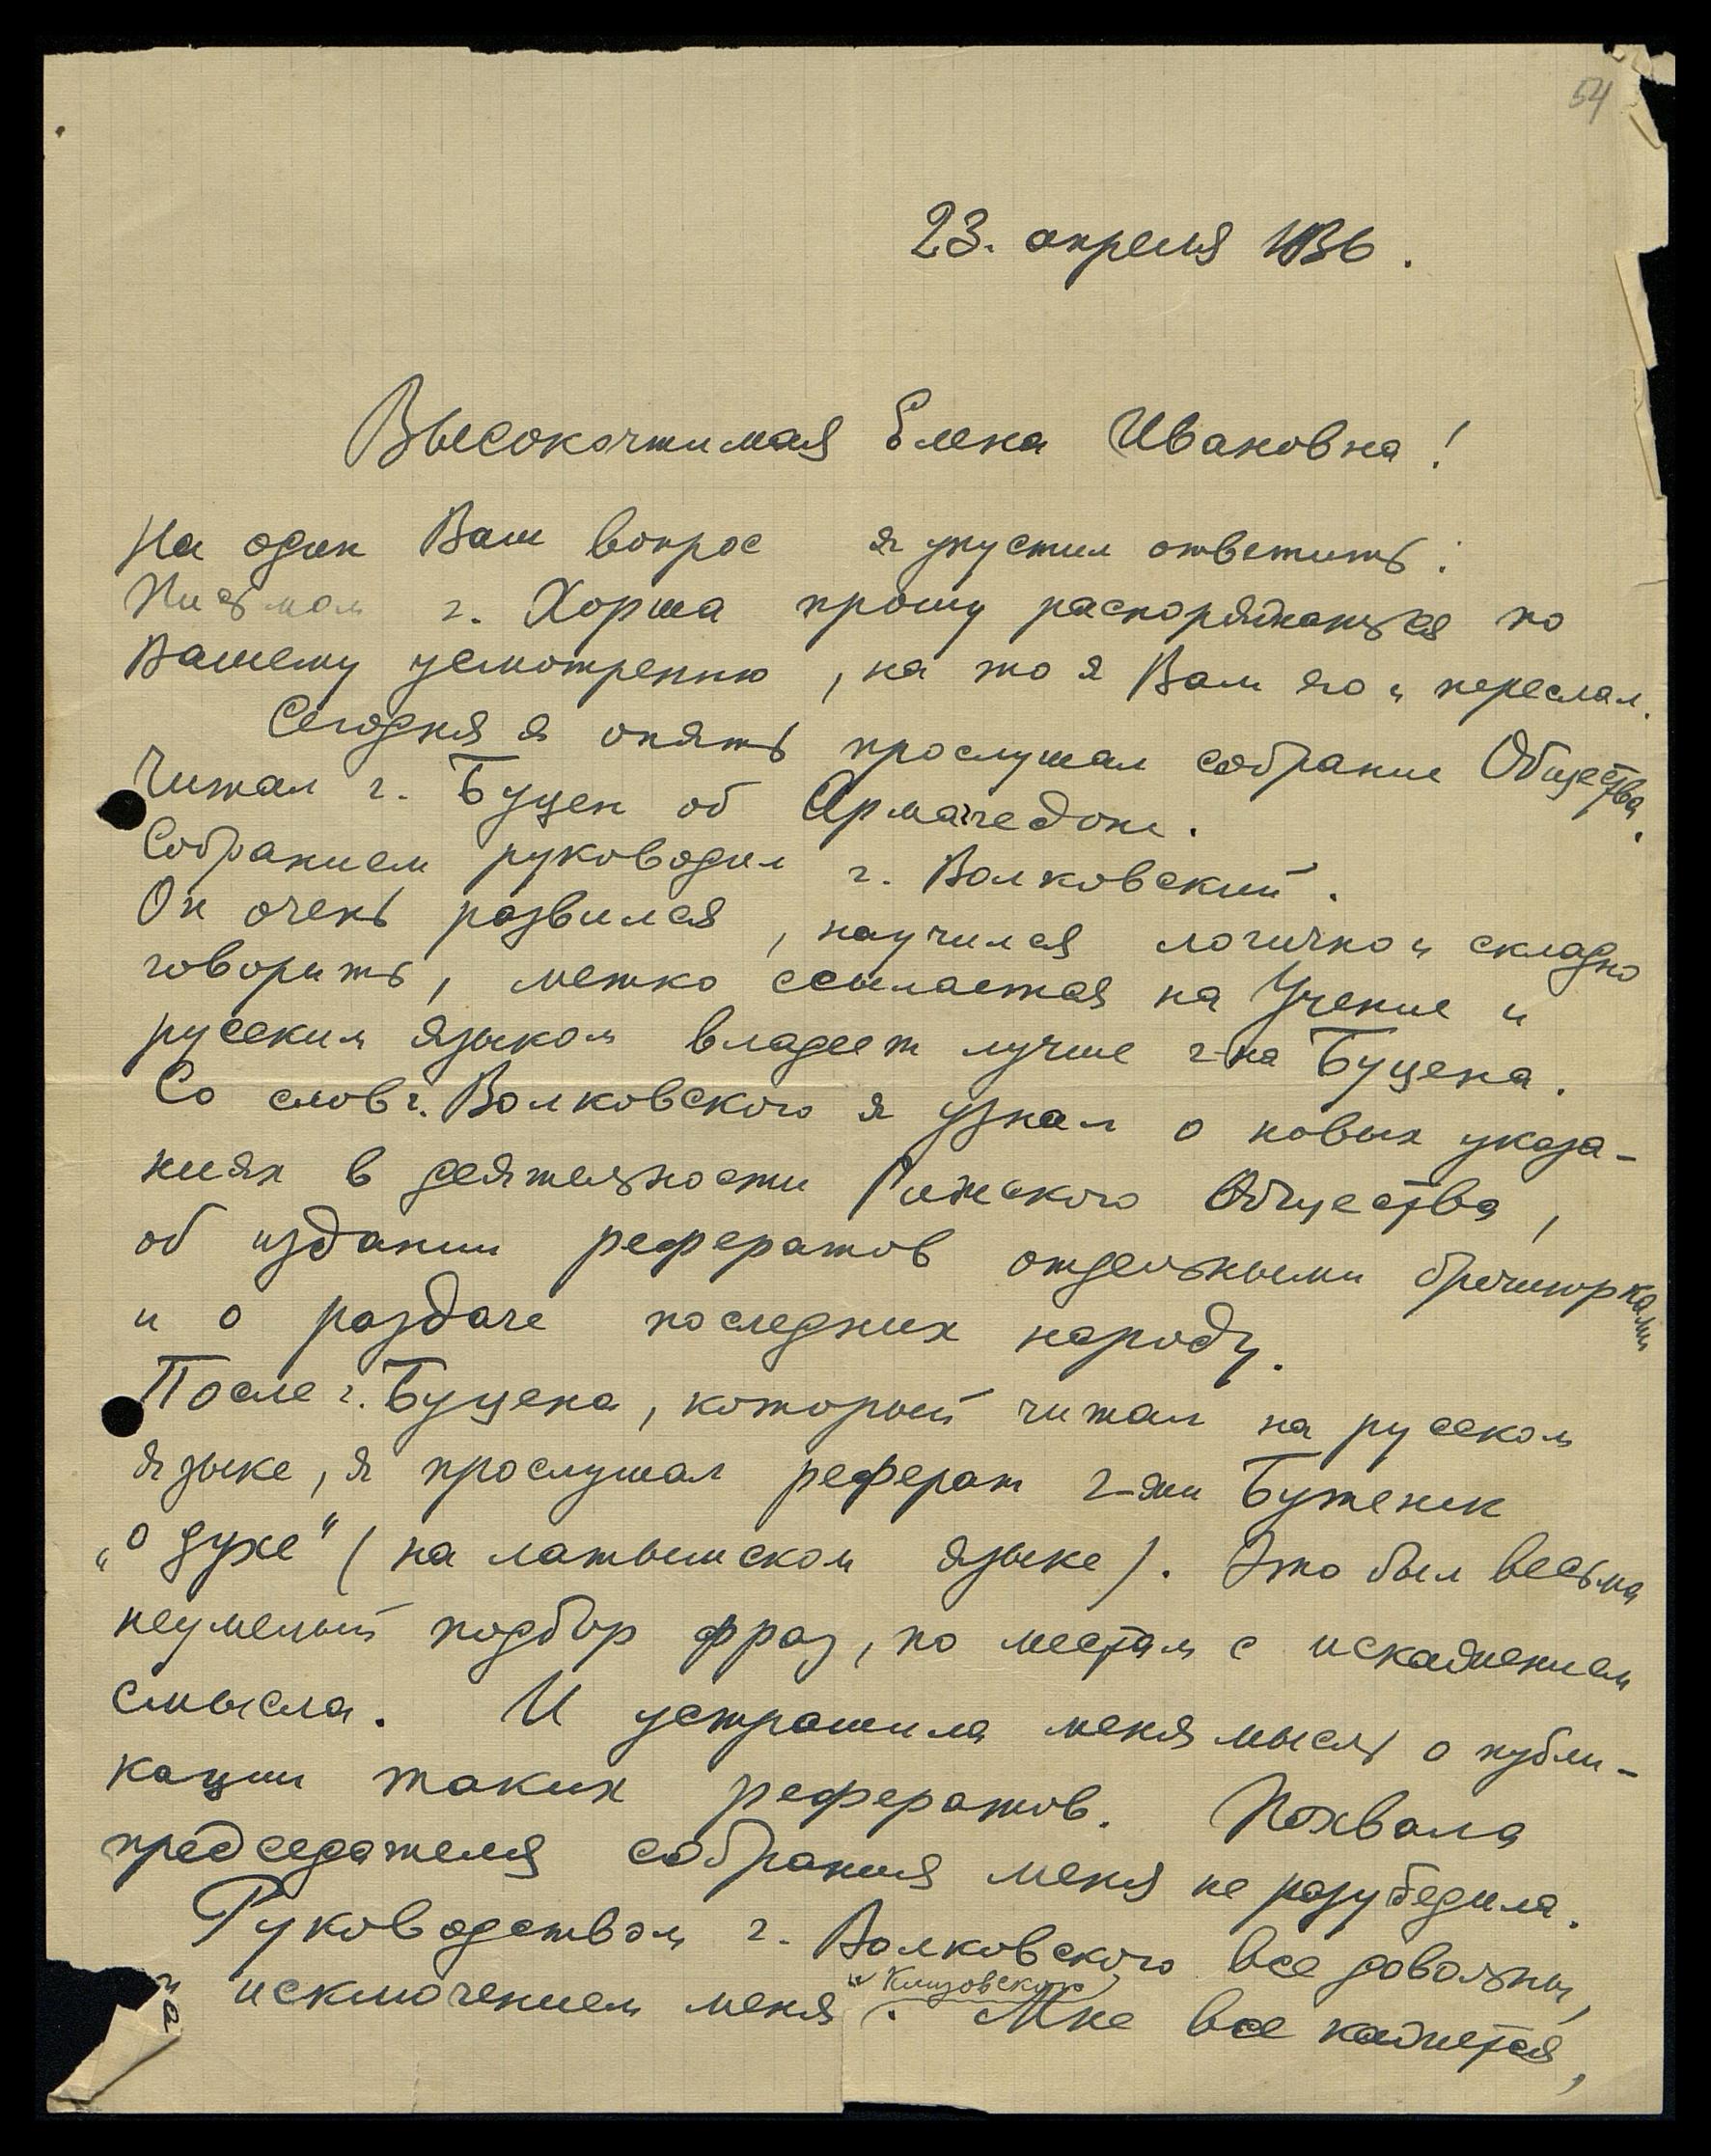 54
23. апреля 1936.
Высокочтимая Елена Ивановна!
На один Ваш вопрос я упустил ответить:
Письмом г. Хорша прошу распоряжаться по
Вашему усмотрению, на то я Вам его и переслал.
Сегодня я опять прослушал собрание Общества.
Читал г. Буцен об Армагедоне.
Собранием руководил г. Волковский.
Он очень развился, научился логично и складно
говорить, метко ссылается на Учение и
русским языком владеет лучше г-на Буцена.
Со слов г. Волковского я узнал о новых указа-
ниях в деятельности Рижского Общества,
об издании рефератов отдельными брошюрками
и о раздаче последних народу.
После г. Буцена, который читал на русском
языке, я прослушал реферат г-жи Буженик
„о духе" (на латышском языке). Это был весьма
неумелый подбор фраз, по местам с искажением
смысла. И устрашила меня мысль о публи-
кации таких рефератов. Похвала
председателя собрания меня не разубедила.
Руководством г. Волковского все довольны,
исключением меня и Клизовского. Мне все кажется,